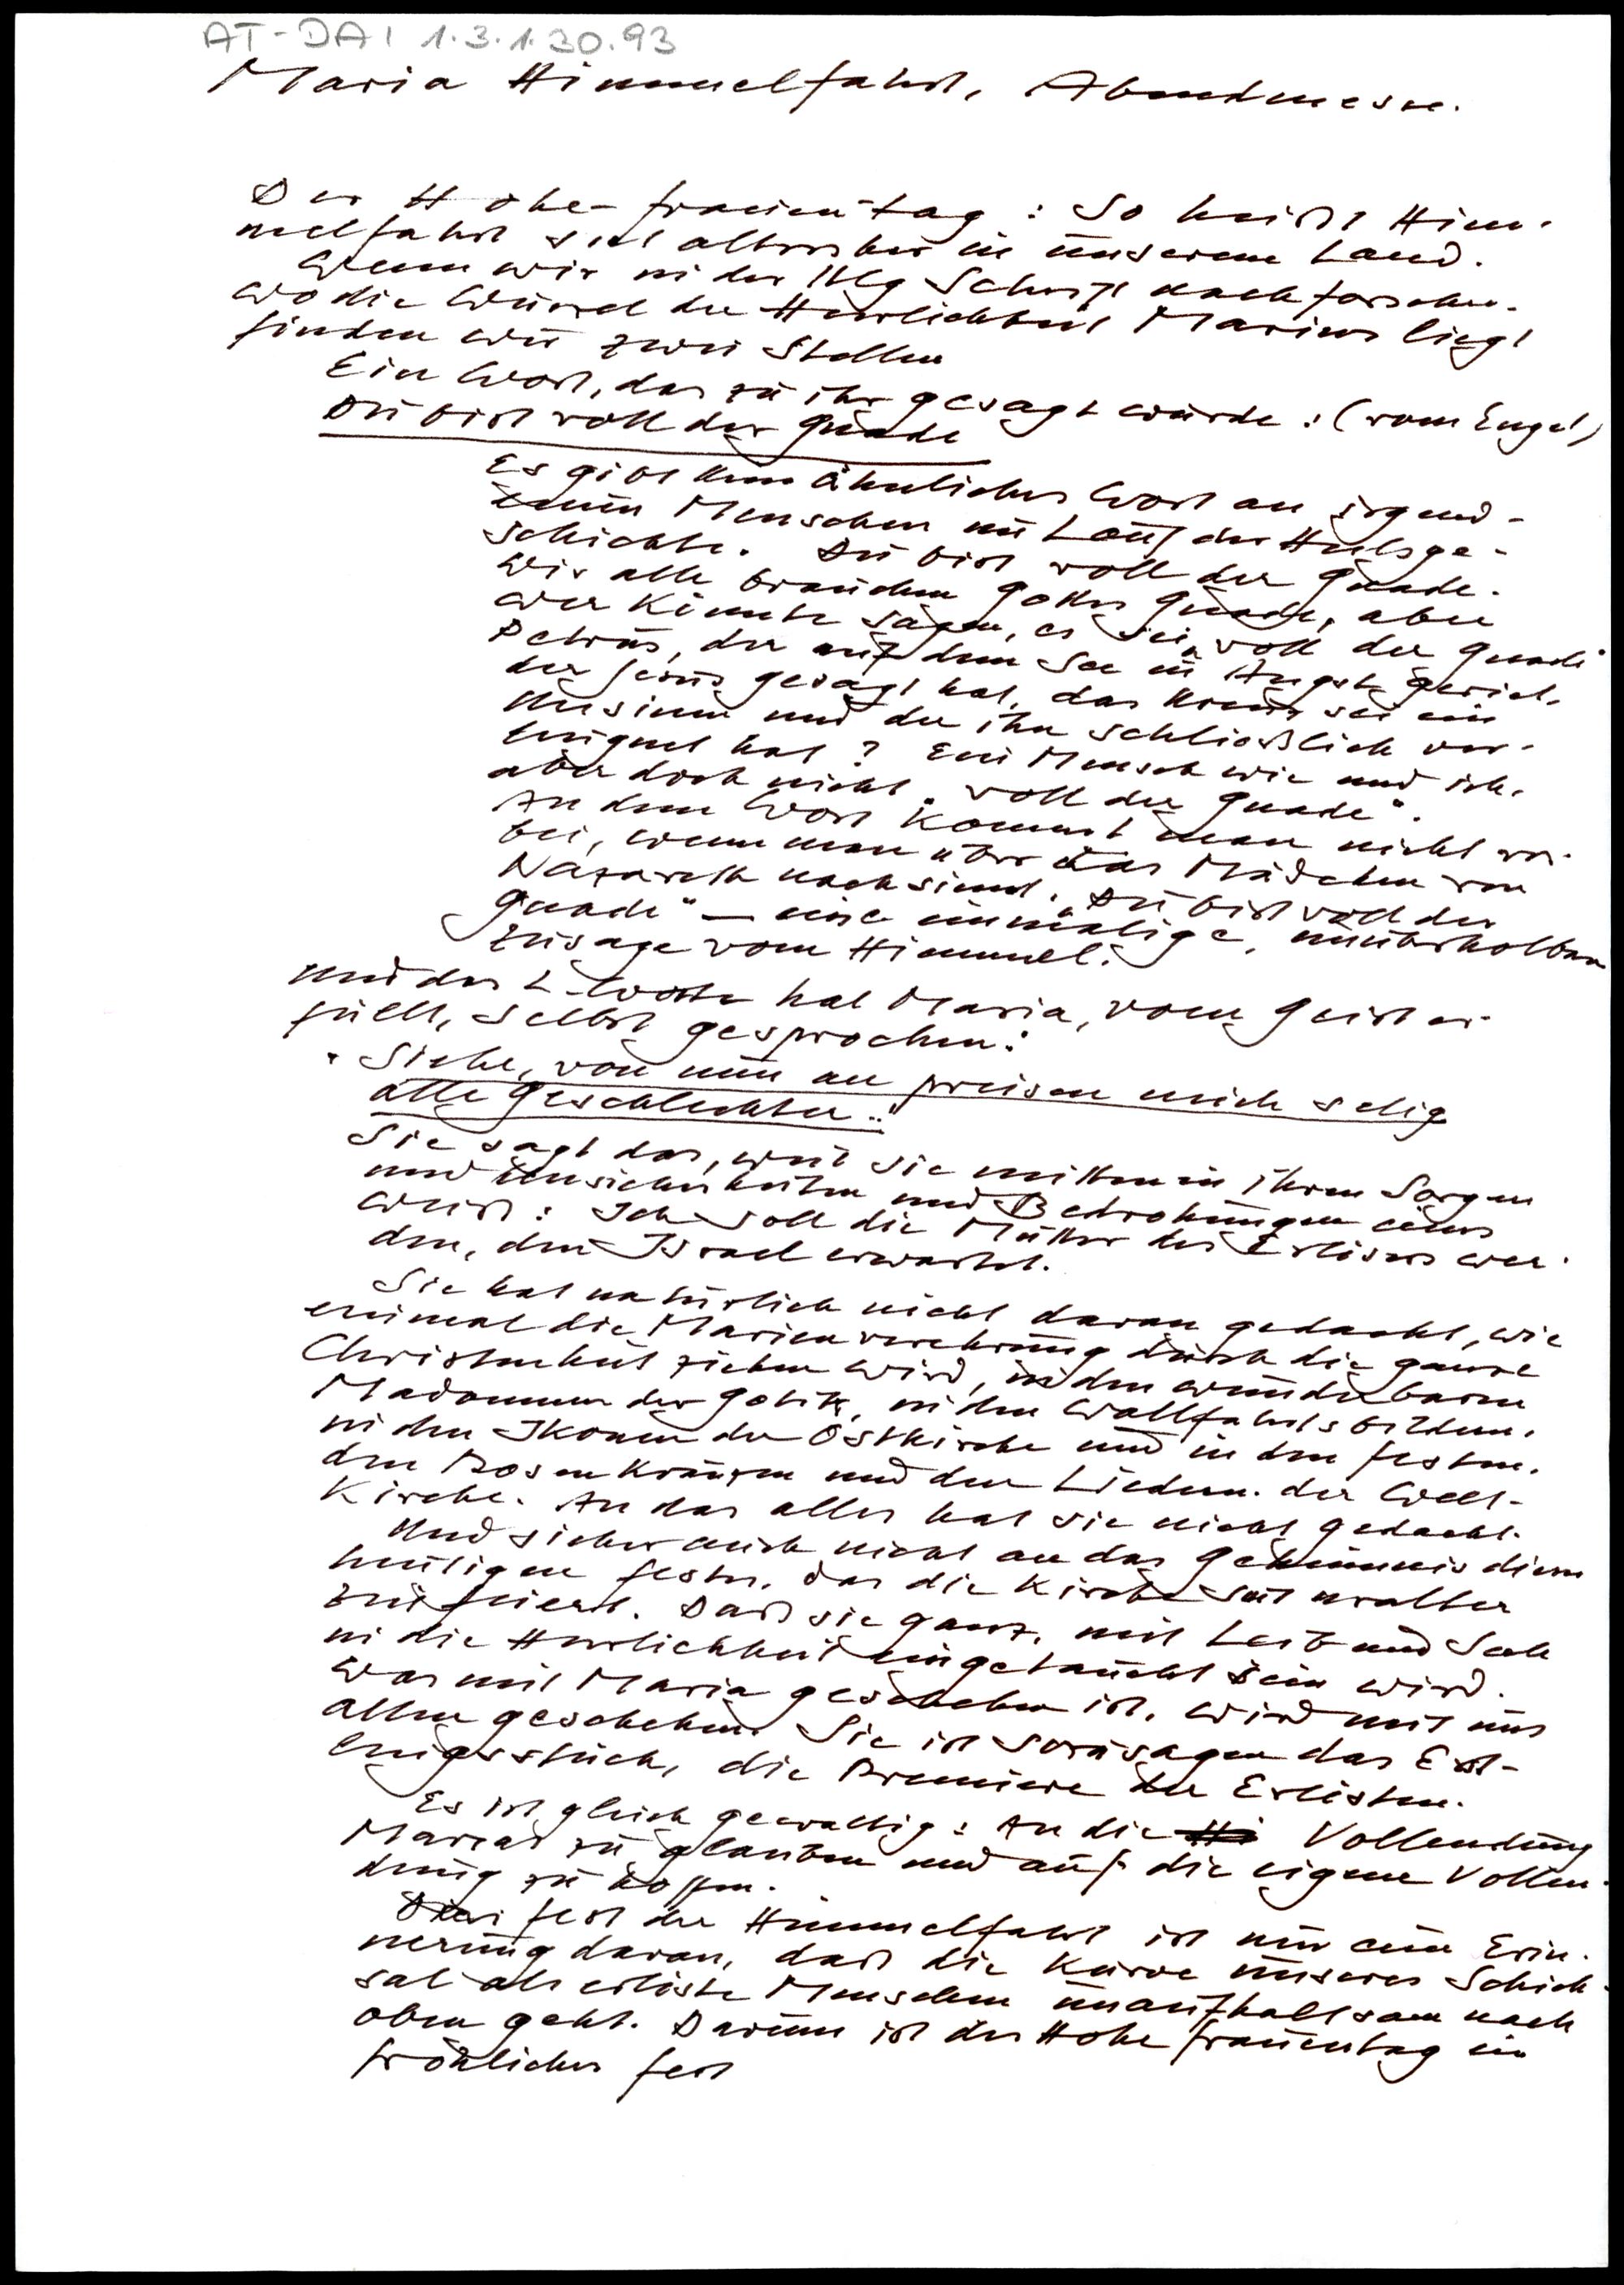 AT-DAI 1.3.1.30.93
Maria Himmelfahrt, Abendmesse.
Der Hohe-frauentag: So heißt Him-
melfahrt seit altersher in unserem Land.
Wenn wir in der Hlg Schrift nachforschen.
wo die Wurzel der Herrlichkeit Mariens liegt
finden wir zwei Stellen
Ein Wort, das zu ihr gesagt wurde: (vom Engel)
Du bist voll der Gnade
Es gibt kein ähnliches Wort an irgend-
einen Menschen im Lauf der Heilsge-
schichte. Du bist voll der Gnade.
Wir alle brauchen Gottes Gnade, aber
wer könnte sagen, er sei „voll der Gnade"
Petrus, der auf dem See in Angst geriet,
der Jesus gesagt hat, das Kreuz sei ein
Unsinn und der ihn schließlich ver-
leugnet hat? Ein Mensch wie und ich.
aber doch nicht „voll der Gnade".
An dem Wort kommt man nicht vor-
bei, wenn man über das Mädchen von
Nazareth nachsinnt. „Du bist voll der
Gnade" — eine einmalige, unüberholbare
Zusage vom Himmel.
Und das 2. Wort hat Maria, vom Geist er-
füllt, selbst gesprochen:
"Siehe, von nun an preisen mich selig
alle Geschlechter."
Sie sagt das, weil sie mitten in ihren Sorgen
und Unsicherheiten und Bedrohungen eines
weiß: Ich soll die Mutter des Erlösers wer-
den, den Israel erwartet.
Sie hat natürlich nicht daran gedacht, wie
einmal die Marienverehrung durch die ganze
Christenheit ziehen wird, in den wunderbaren
Madonnen der Gotik, in den Wallfahrtsbildern,
in den Ikonen der Ostkirche und in den festen,
den Rosenkränzen und den Liedern der Welt-
Kirche. An das alles hat sie nicht gedacht.
Und sicher auch nicht an das Geheimnis dieses
heutigen festes, das die Kirche seit uralter
Zeit feiert. Daß sie ganz, mit Leib und Seele
in die Herrlichkeit eingetaucht sein wird.
Was mit Maria geschehen ist, wird mit uns
allen geschehen. Sie ist sozusagen das Erst-
lingsstück, die Premiere der Erlösten.
Es ist gleich gewaltig: An die Vollendung
Marias zu glauben und auf die eigene Vollen-
dung zu hoffen.
Das fest der Himmelfahrt ist nur eine Erin-
nerung daran, daß die Kurve unseres Schick-
sal als erlöste Menschen unaufhaltsam nach
oben geht. Darum ist der Hohe frauentag ein
fröhliches fest